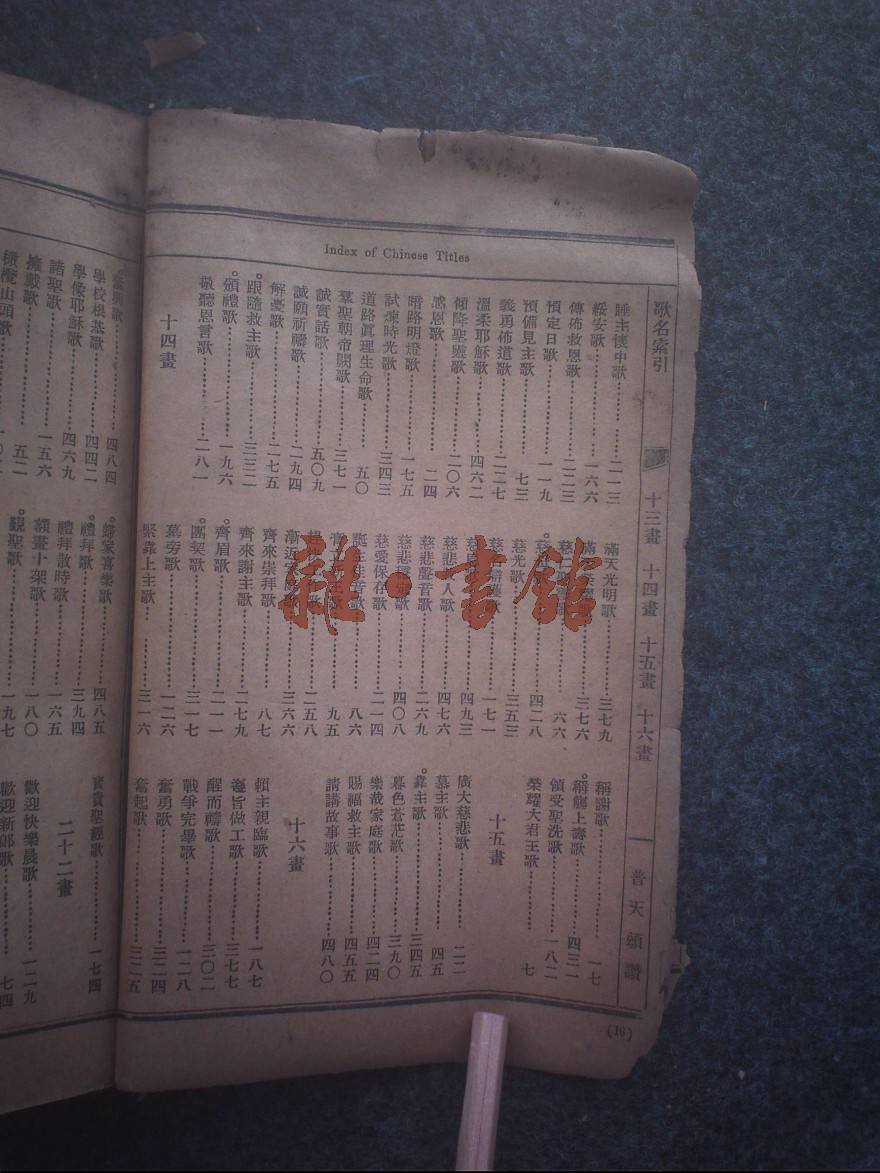 Index of Chinese Titles
歌名索引
十三畫 十四畫 十五畫 十六畫
一 普天頌讚
(16)
睡主懷中歌 二一三
綏安歌 一六六
傳佈救恩歌 二二三
預定日歌 一一九
預備見主歌 七三
義勇佈道歌 二二七
溫柔耶穌歌 四六二
傾降聖靈歌 二〇六
感恩歌 二四
暗路明燈歌 一七五
試煉時光歌 三四三
道路眞理生命歌 五〇
羣聖朝帝闕歌 三七一
誠實話歌 五〇九
誠願祈禱歌 二九四
解憂歌 二七五
跟隨救主歌 三三二
頒禮歌 一九六
敬聽恩言歌 二八一
十四畫
滿天光明歌 三七九
三七六
六六
四二八
慈光歌 三五三
一七一
四九三
四七六
慈悲聲音歌 二六九
四〇八
慈愛保存歌 二一四
八六
九五
二五八
三六六
齊來崇拜歌 八七
齊來謝主歌 二七九
齊眉歌 二一一
團契歌 三一七
墓旁歌 一二六
緊靠上主歌 三一六
稱謝歌 一七
稱觴上壽歌 四三一
領受聖洗歌 一八二
榮耀大君王歌 七
十五畫
廣大慈悲歌 二二
慕主歌 四五
靠主歌 三四五
暮色蒼茫歌 三九〇
樂哉家庭歌 四二四
賜福救主歌 四五五
請講故事歌 四八〇
十六畫
賴主親臨歌 一八七
遵旨做工歌 三七七
醒而禱歌 三〇二
戰爭完畢歌 一二八
奮勇歌 三二四
奮起歌 三二五
四八四
學校根基歌 四四二
學像耶穌歌 四六九
諸聖歌 一五六
擁戴歌 五二
橄欖山頭歌
歸家喜樂歌 四八五
禮拜歌 三九四
禮拜散時歌 一六五
額畫十架歌 一八〇
覲聖歌 一九七
寶貴聖經歌 一七四
二十二畫
歡迎快樂晨歌 一二九
歡迎新郎歌 七四
雜·書館